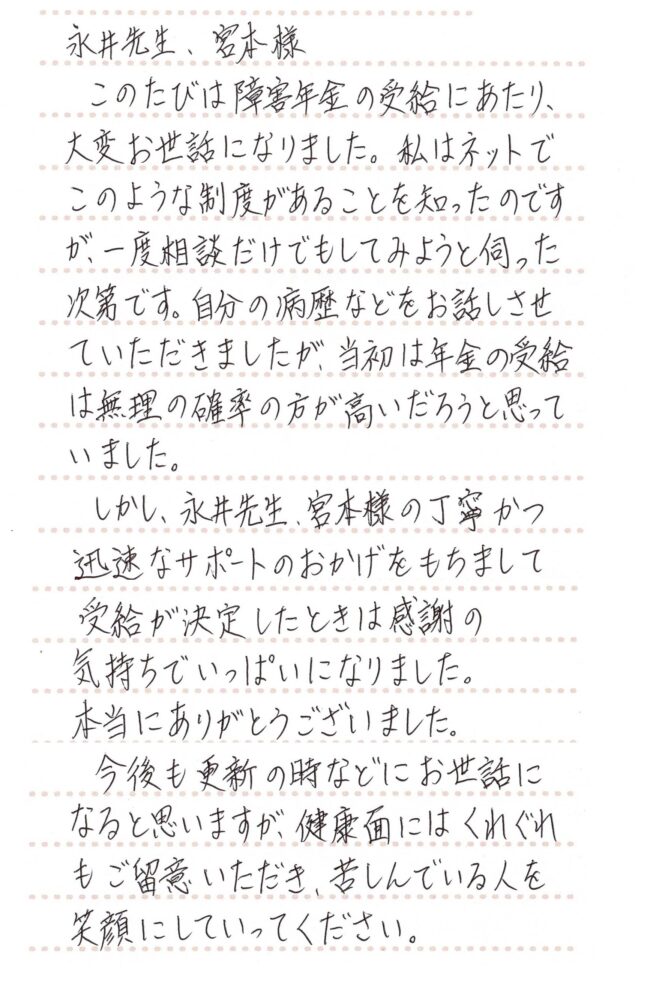 永井先生、宮本様
このたびは障害年金の受給にあたり、
大変お世話になりました。私はネットで
このような制度があることを知ったのです
が、一度相談だけでもしてみようと伺った
次第です。自分の病歴などをお話しさせ
ていただきましたが、当初は年金の受給
は無理の確率の方が高いだろうと思って
いました。
しかし、永井先生、宮本様の丁寧かつ
迅速なサポートのおかげをもちまして
受給が決定したときは感謝の
気持ちでいっぱいになりました。
本当にありがとうございました。
今後も更新の時などにお世話に
なると思いますが、健康面にはくれぐれ
もご留意いただき、苦しんでいる人を
笑顔にしていってください。